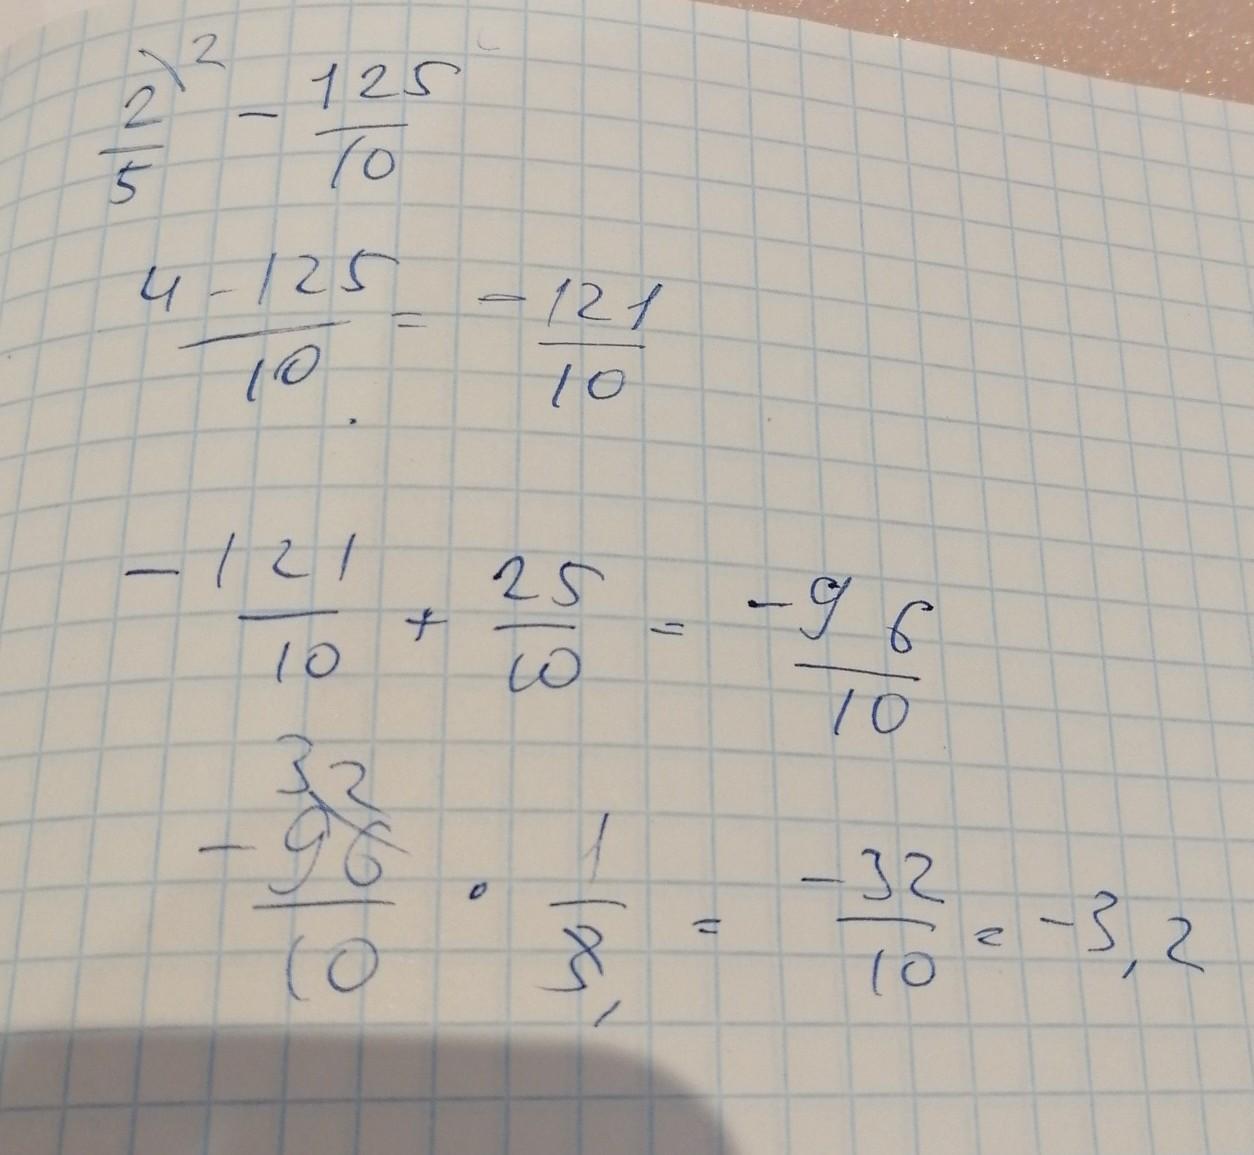 2/5 \2 - 125/10
4 - 125/10 = -121/10
-121/10 + 25/10 = -96/10
32
-96/10 · 1/3 = -32/10 = -3,2
1